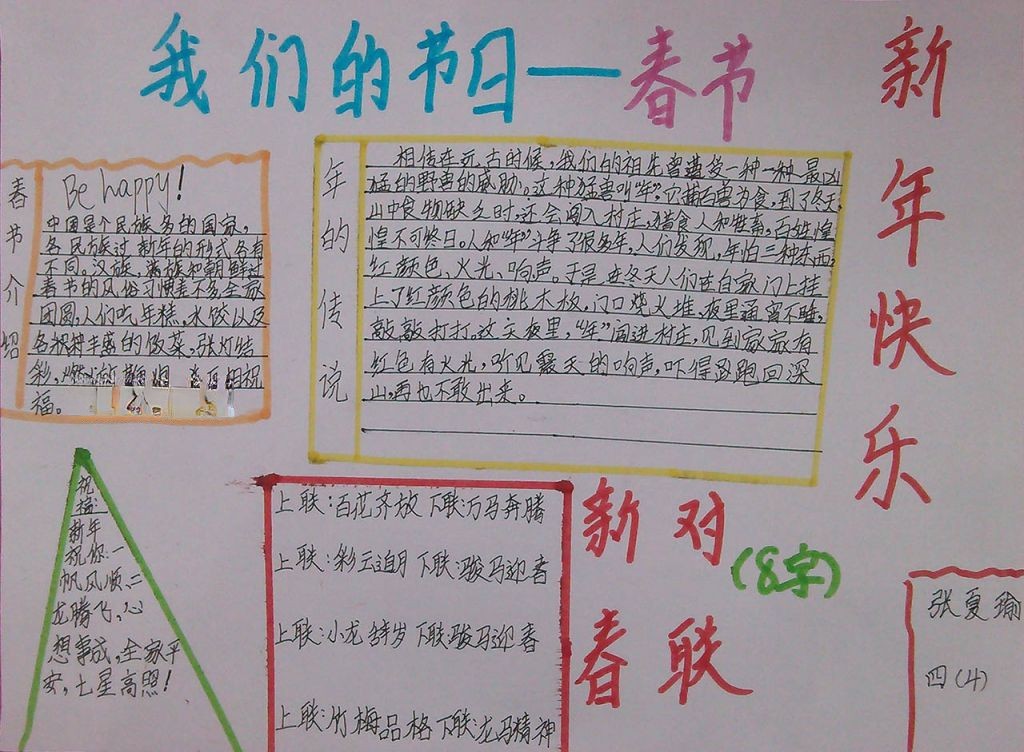 我们的节日——春节
新年快乐
春节介绍
Be happy!
中国是个民族多的国家,
各民族过新年的形式各有
不同。汉族,满族和朝鲜过
春节的风俗习惯差不多全家
团圆,人们吃年糕,水饺以及
各种丰盛的饭菜,张灯结
彩, 相祝
福。
年的传说
相传在远古时候,我们的祖先曾遭受一种一种最凶
猛的野兽的威胁。这种猛兽叫“年”,它捕百兽为食,到了冬天,
山中食物缺乏时,还会闯入村庄,猎食人和牲畜,百姓惶
惶不可终日。人和“年”斗争了很多年,人们发现,年怕三种东西,
红颜色、火光、响声。于是在冬天人们在自家门上挂
上了红颜色的桃木板,门口烧火堆,夜里通宵不睡,
敲敲打打。这天夜里,“年”闯进村庄,见到家家有
红色有火光,听见震天的响声,吓得逃跑回深
山,再也不敢出来。
祝
福:
新年
祝你:一
帆风顺,二
龙腾飞,心
想事成,全家平
安,七星高照!
上联:百花齐放 下联:万马奔腾
上联:彩云追月 下联:骏马迎春
上联:小龙辞岁 下联:骏马迎春
上联:竹梅品格 下联:龙马精神
新对
(8字)
春联
张夏瑜
四(4)